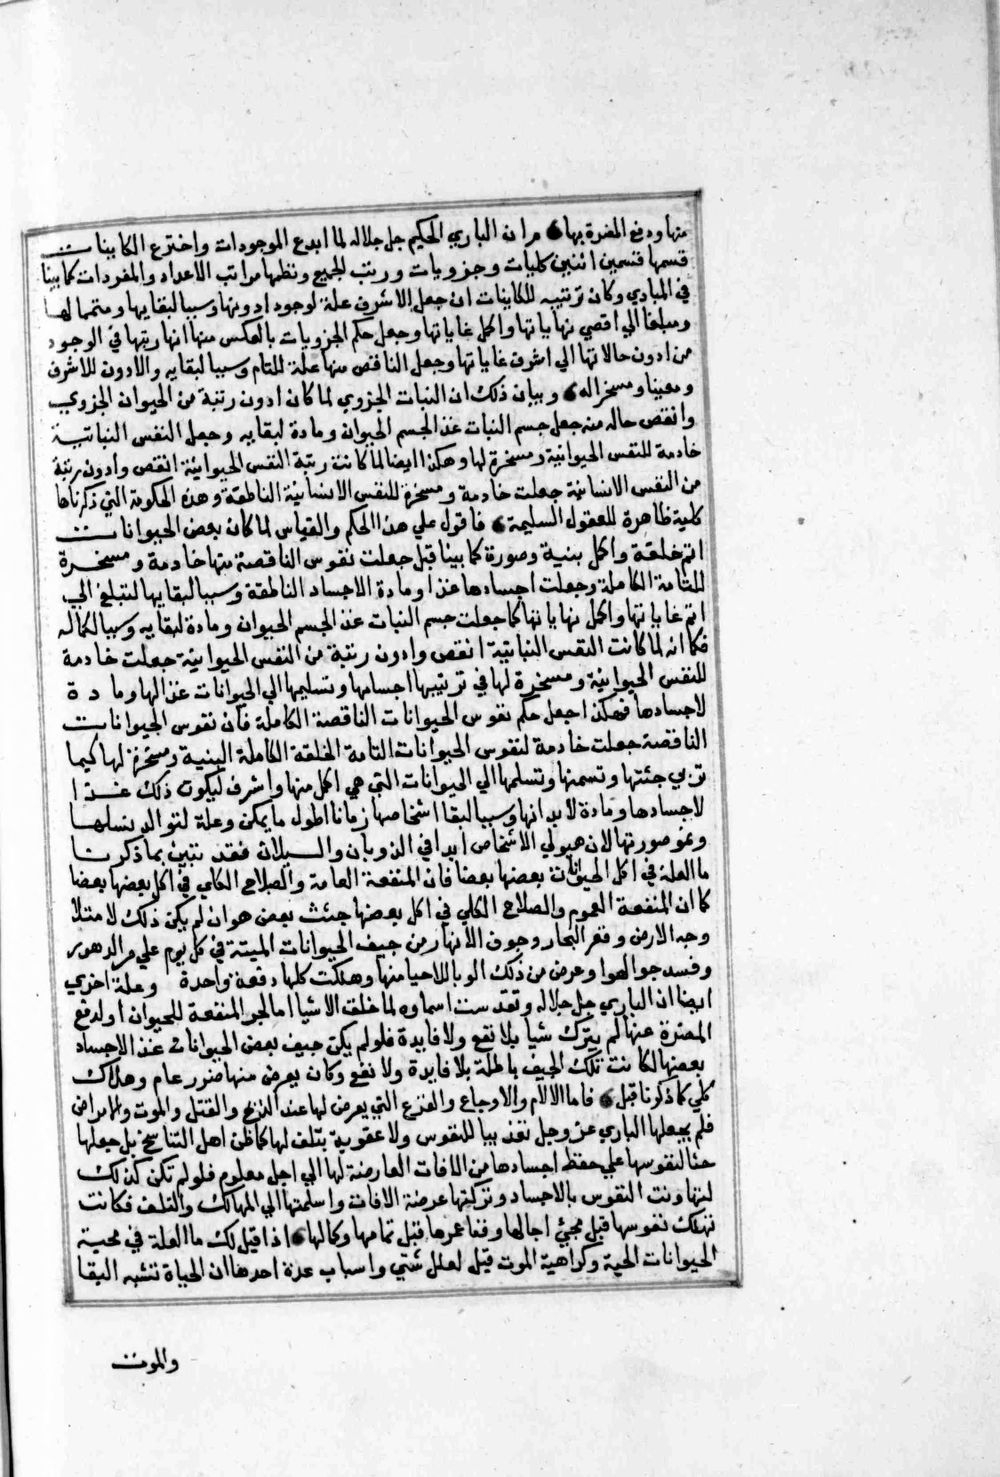 منها ودفع المضرة بها ثم ان الباري الحكيم جل جلاله لما ابدع الموجودات واخترع الكاينات
قسمها قسمين اثنين كليات وجزويات ورتب الجميع ونظمها مراتب الاعداد والمفردات كما بينا
في المبادي وكان ترتيبه للكاينات ان جعل الاشرف علة لوجود ادونها وسببا لبقايها ومتمما لها
ومبلغا الي اقصي نهاياتها واكمل غاياتها وجعل حكم الجزويات بالعكس منها انها رتبها في الوجود
من ادون حالاتها الي اشرف غاياتها وجعل الناقص منها علة للتام وسببا لبقايه والادون للاشرف
ومعينا ومسخرا له وبيان ذلك ان النبات الجزوي لما كان ادون رتبة من الحيوان الجزوي
وانقص حاله منه جعل جسم النبات غذا لجسم الحيوان ومادة لبقايه وجعل النفس النباتية
خادمة للنفس الحيوانية ومسخرة لها وهكذا ايضا لما كانت رتبة النفس الحيوانية انقص وادون رتبة
من النفس الانسانية جعلت خادمة ومسخرة للنفس الانسانية الناطقة وهذه الحكومة التي ذكرناها
كلية ظاهرة للعقول السليمة فاقول علي هذا الحكم والقياس لما كان بعض الحيوانات
اتم خلقة واكمل بنية وصورة كما بينا قبل جعلت نفوس الناقصة منها خادمة ومسخرة
للتامة الكاملة وجعلت اجسادها غذا ومادة الاجساد الناطقة وسببا لبقايها لتبلغ الي
اتم غاياتها واكمل نهاياتها كما جعلت جسم النبات غذا لجسم الحيوان ومادة لبقايه وسببا لكماله
فكما انه لما كانت النفس النباتية انقص وادون رتبة من النفس الحيوانية جعلت خادمة
للنفس الحيوانية ومسخرة لها في ترتيبها اجسامها وتسليمها الي الحيوانات غذا لها ومادة
لاجسادها فهكذا جعل حكم نفوس الحيوانات الناقصة الكاملة فان نفوس الحيوانات
الناقصة جعلت خادمة لنفوس الحيوانات التامة الخلقة الكاملة البنية ومسخرة لها كيما
تربي جثتها وتسمنها وتسلمها الي الحيوانات التي هي اكمل منها واشرف ليكون ذلك غذا
لاجسادها ومادة لابدانها وسببا لبقا اشخاصها زمانا اطول ما يمكن وعلة لتوالد نسلها
ونمو صورتها لان هيولي الاشخاص ابدا في الذوبان والسيلان فقد تبين بما ذكرنا
ما العلة في اكل الحيوانات بعضها بعضا فان المنفعة العامة والصلاح الكلي في اكل بعضها بعضا
كما ان المنفعة العموم والصلاح الكلي في اكل بعضها جثث بعض هو ان لم يكن ذلك لامتلا
وجه الارض وقعر البحار وجوف الانهار من جيف الحيوانات الميتة في كل يوم علي مر الدهور
وفسد جو الهوا وعرض من ذلك الوبا للاحيا منها وهلكت كلها دفعة واحدة وعلة اخري
ايضا ان الباري جل جلاله وتقدست اسماوه لما خلق الاشيا اما لجر المنفعة للحيوان او لدفع
المضرة عنها لم يترك شيا بلا نفع ولا فايدة فلو لم يكن جيف بعض الحيوانات غذا لاجساد
بعضها لكانت تلك الجيف باطلة بلا فايدة ولا نفع وكان يعرض منها ضرر عام وهلاك
كلي كما ذكرنا قبل فاما الالام والاوجاع والفزع التي يعرض لها عند الذبح والقتل والموت والامراض
فلم يجعلها الباري عز وجل تعذيبا للنفوس ولا عقوبة بتلف لها كما ظن اهل التناسخ بل جعلها
حثا لنفوسها علي حفظ اجسادها من الافات العارضة لها الي اجل معلوم فلو لم تكن كذلك
لتهاونت النفوس بالاجساد وتركتها عرضة الافات واسلمتها الي المهالك والتلف فكانت
تهلك نفوسها قبل مجي اجالها وفنا عمرها قبل تمامها وكمالها اذا قيل لك ما العلة في محبة
الحيوانات الحية وكراهية الموت قيل لعلل شتي واسباب عدة احدها ان الحياة تشبه البقا
والموت